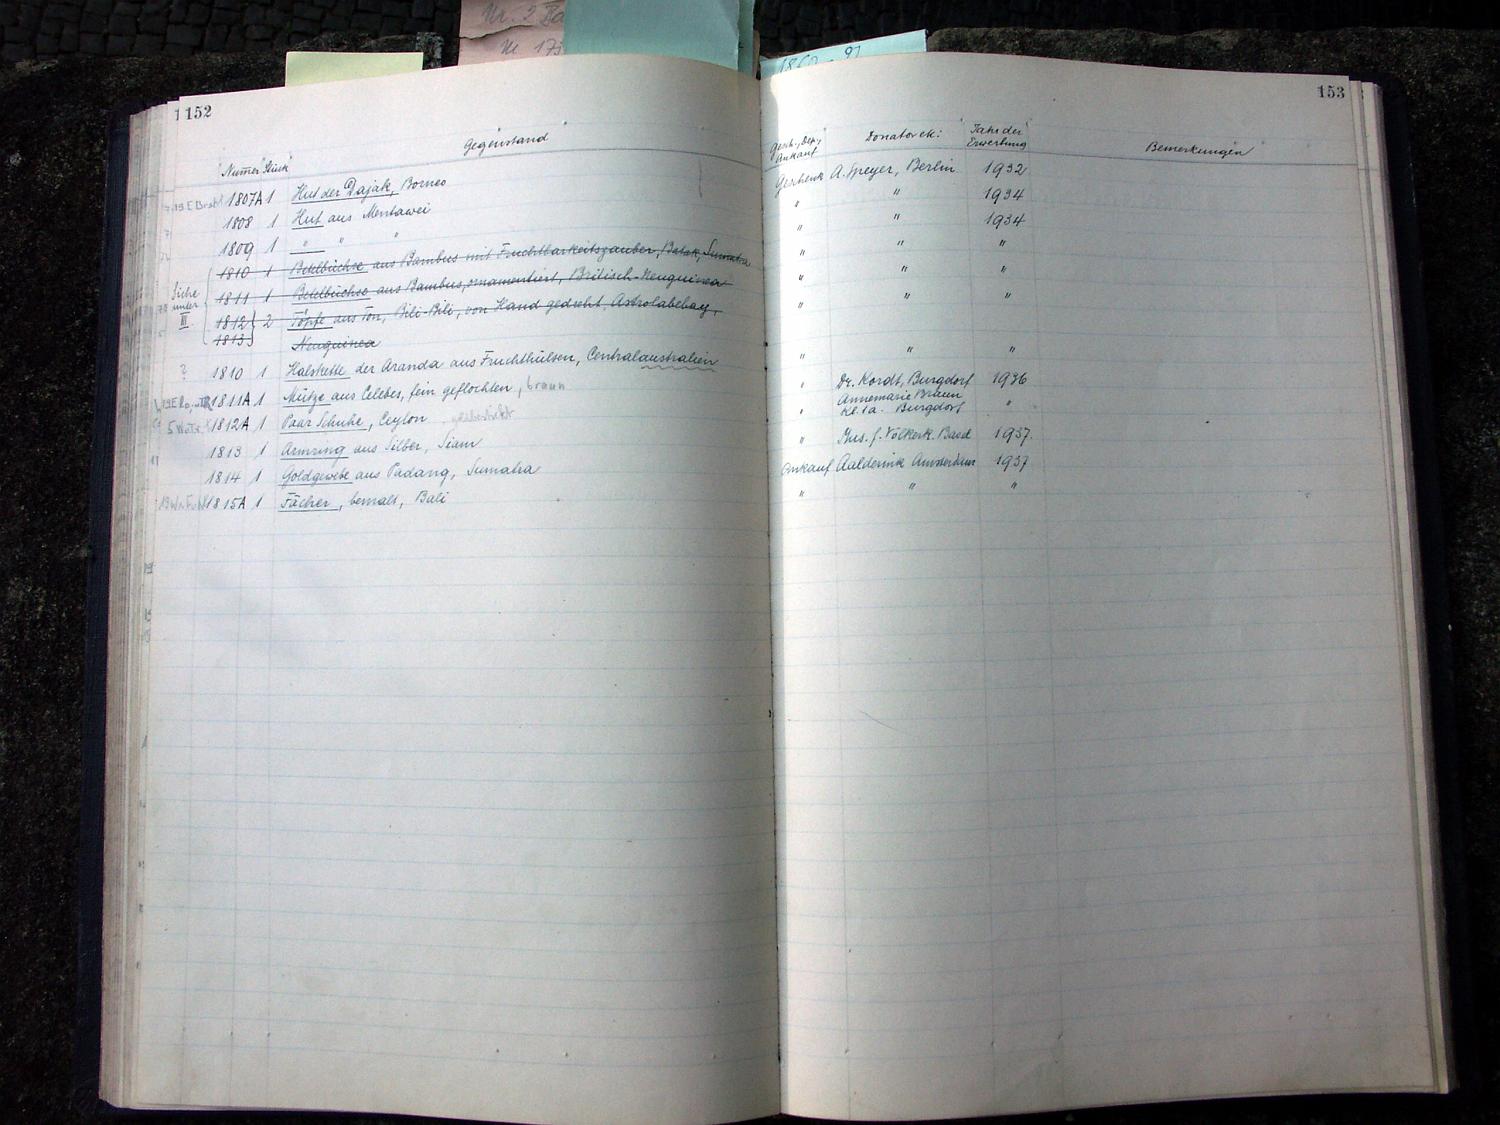 Nr. 2
Nr. 173
152
153
Gegenstand
Gesch., Dep., Ankauf
Donator ek:
Jahr der Erwerbung
Bemerkungen
Numer Stück
1807A 1 Hut der Dajak, Borneo Geschenk A. Speyer, Berlin 1932
1808 1 Hut aus Mentawei " " 1934
1809 1 " " " " " 1934
1810 1 Betelbüchse aus Bambus mit Fruchtbarkeitszauber, Batak, Sumatra " " "
Siehe unter III.
1811 1 Betelbüchse aus Bambus, ornamentiert, Britisch-Neuguinea " " "
1812 } 2 Töpfe aus Ton, Bili-Bili, von Hand gedreht, Astrolabebay, " " "
1813 } Neuguinea
? 1810 1 Halskette der Aranda aus Fruchthülsen, Centralaustralien " " "
1811A 1 Mütze aus Celebes, fein geflochten, braun " Dr. Kordt, Burgdorf 1936
1812A 1 Paar Schuhe, Ceylon " Annemarie Braun Kl. 1a. Burgdorf "
1813 1 Armring aus Silber, Siam " Mus. f. Völkerk. Basel 1937.
1814 1 Goldgewebe aus Padang, Sumatra Ankauf Aalderink Amsterdam 1937
1815A 1 Fächer, bemalt, Bali " " "